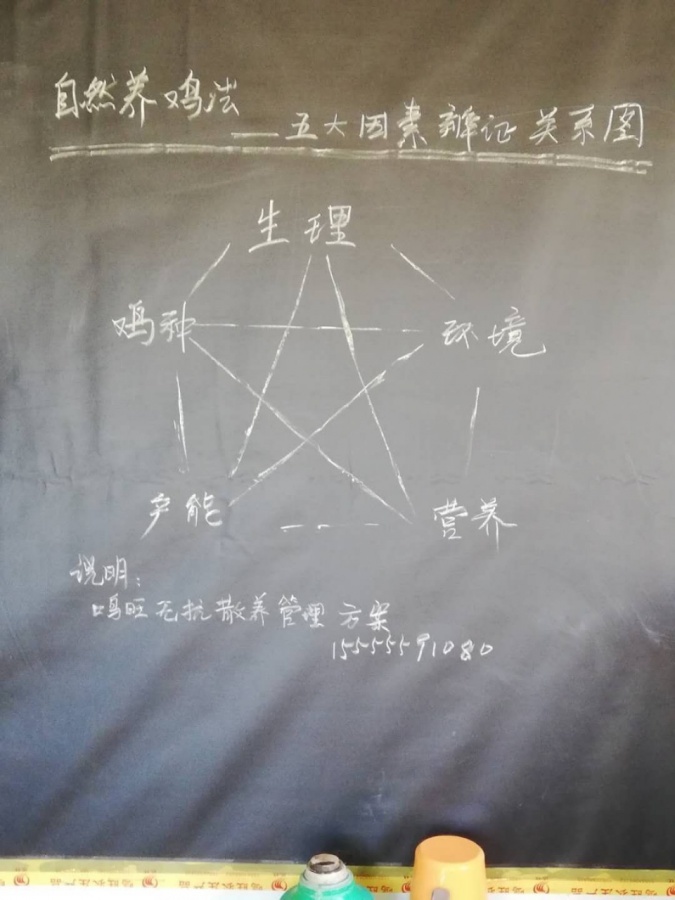 自然养鸡法
——五大因素辩证关系图
生理
鸡种
环境
产能
营养
说明:
鸣旺无抗散养管理方案
15555591080